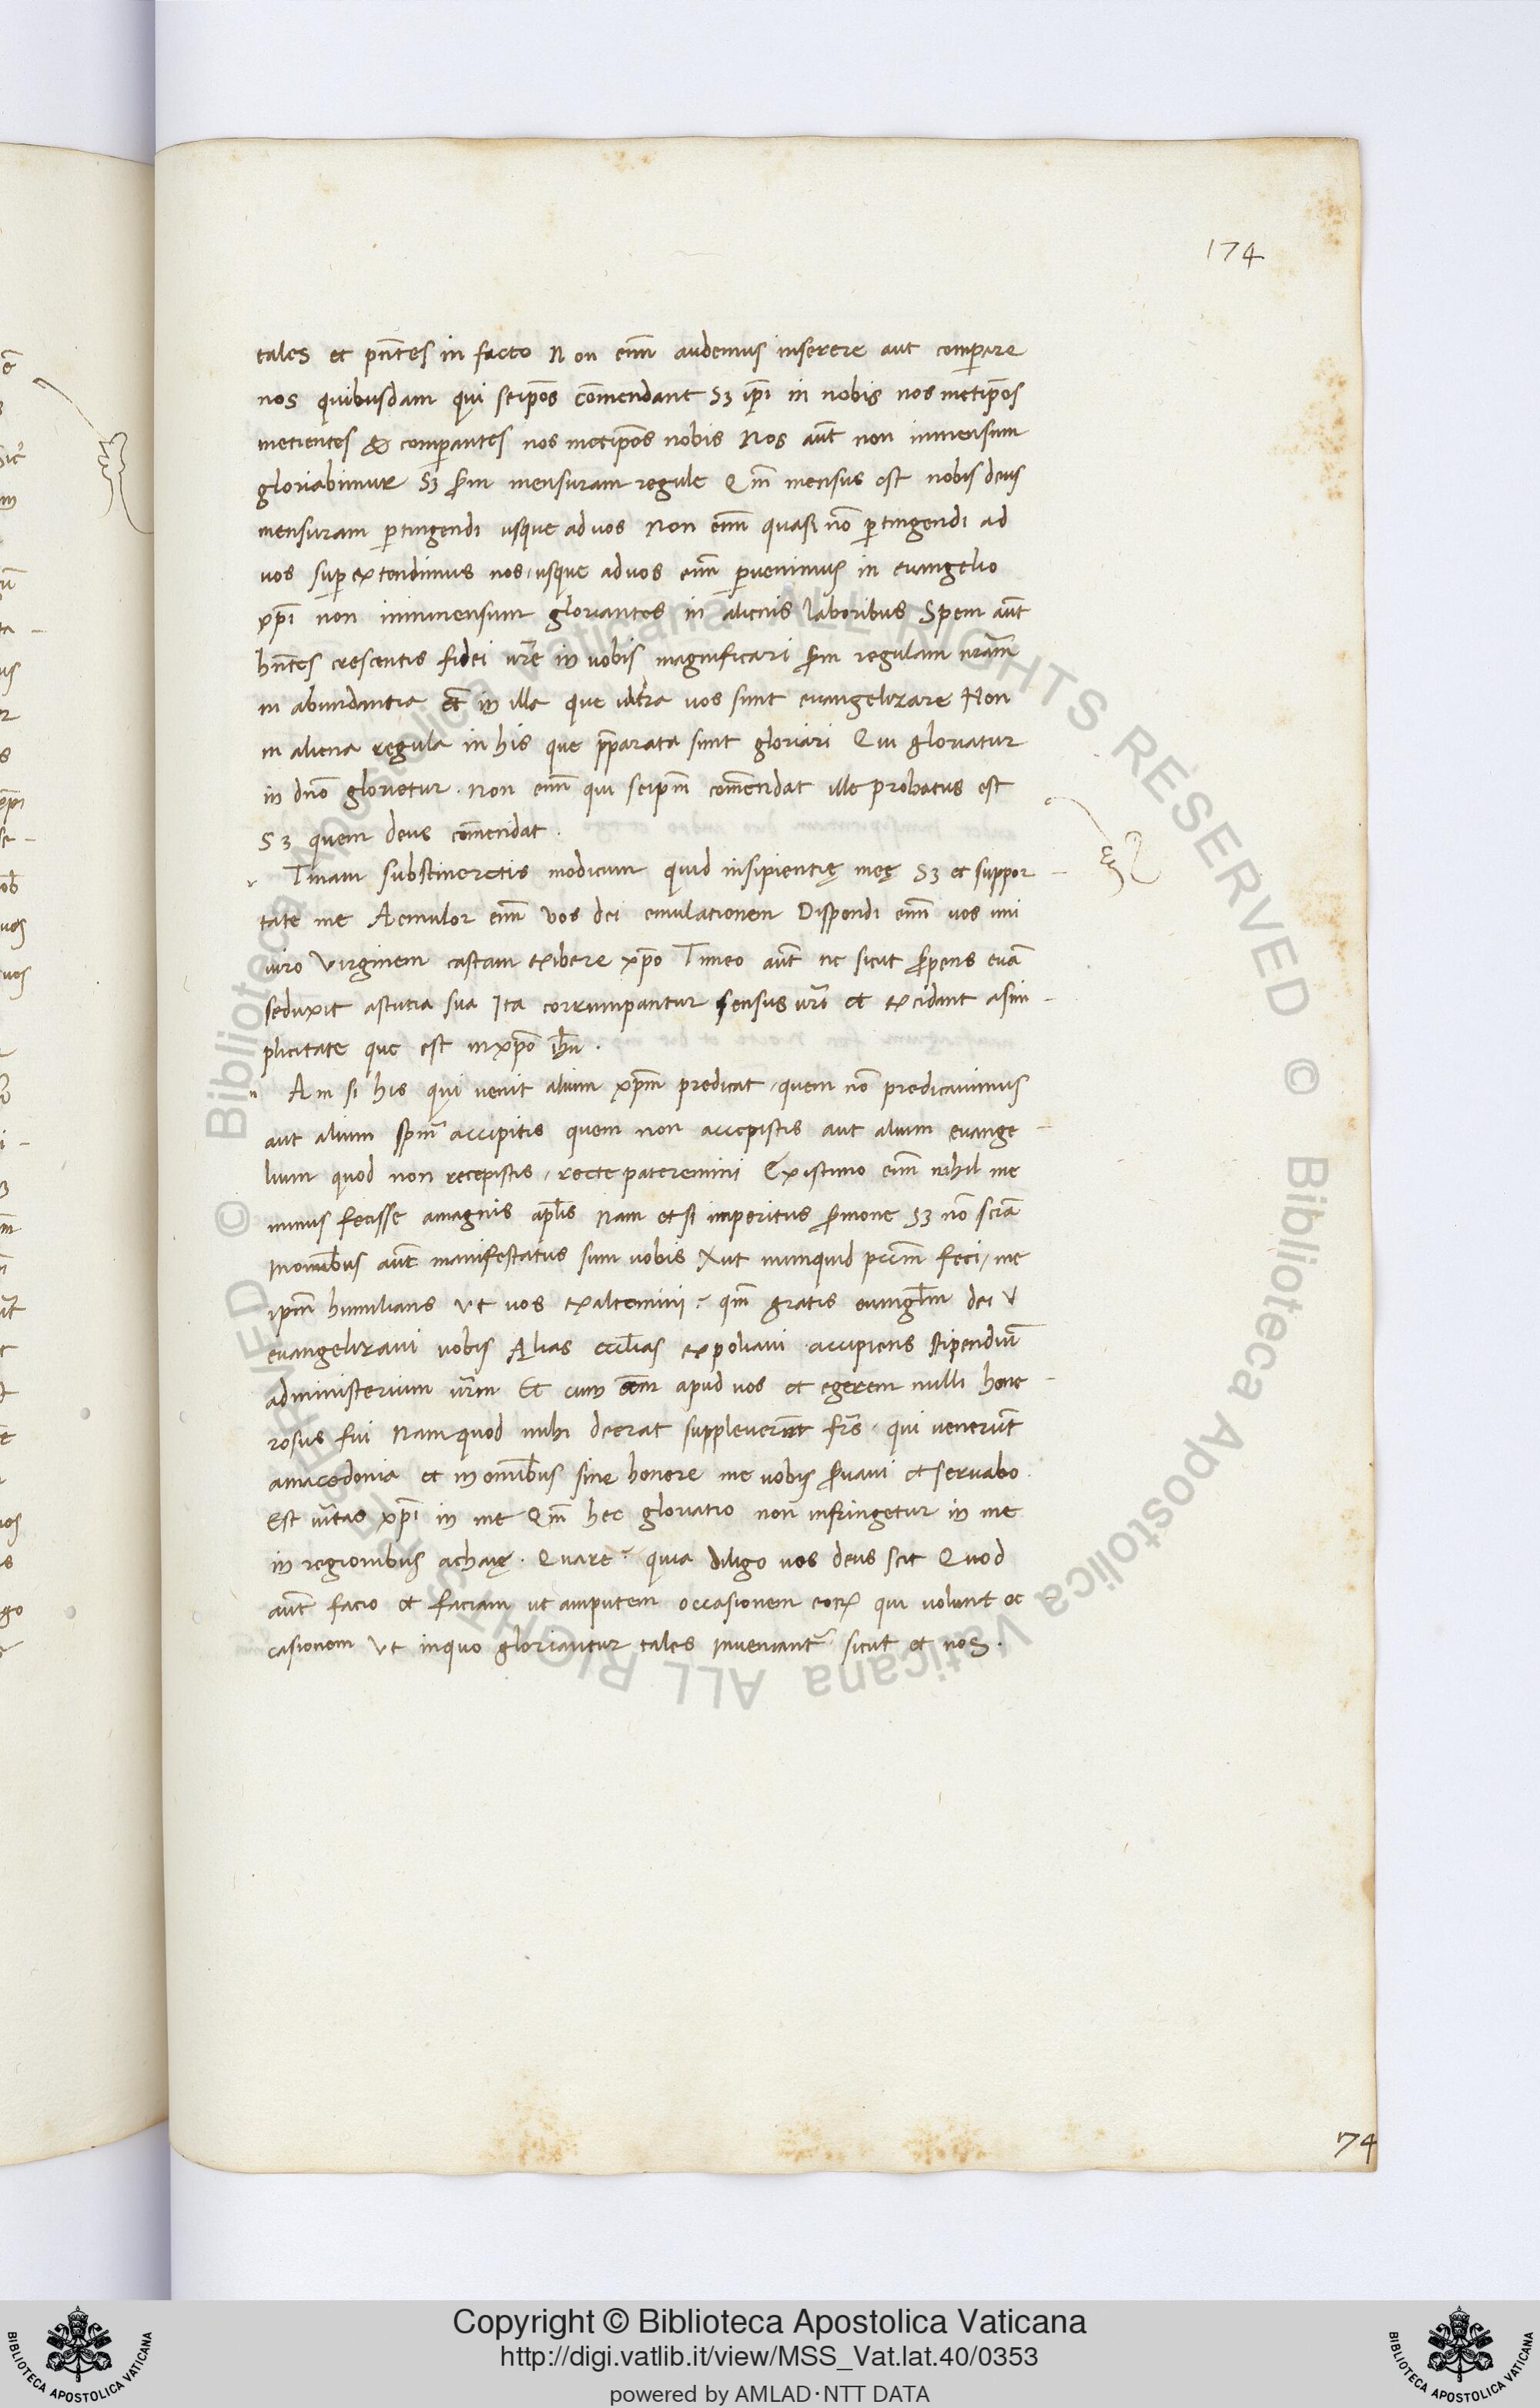 174
tales et pn̄tes in facto Non eni͞m audemus inserere aut comꝑare
nos quibusdam qui seip̄os com̄endant Sꝫ ip̄i in nobis nos metip̄os
metientes & comꝑantes nos metip̄os nobis Nos aūt non inmensum
gloriabimur Sꝫ s̄m mensuram regule Qm̄ mensus est nobis deus
mensuram ꝑtingendi usque ad uos Non eni͞m quasi nō ꝑtingendi ad
uos suꝑextendimus nos, usque ad uos eni͞m ꝑuenimus in euangelio
xp̄i non inmensum gloriantes in alienis laboribus Spem aūt
hn̄tes crescentis fidei ur̄e in uobis magnificari s̄m regulam nr̄am
in abundantia et̄ in illa que ultra uos sunt euangelizare Non
in aliena regula in his que p̄parata sunt gloriari Qui gloriatur
in dn̄o glorietur. Non eni͞m qui seip̄m com̄endat ille probatus est
Sꝫ quem deus com̄endat.
v Tinam substineretis modicum quid insipientię meę Sꝫ et suppor-
tate me Aemulor eni͞m vos dei emulationem Dispondi eni͞m uos uni
uiro Virginem castam exibere xp̄o Timeo aūt ne sicut s̄pens euā
seduxit astutia sua Ita corrumpantur sensus ur̄i et excidant asim-
plicitate que est inxp̄o ihū.
n Am si his qui uenit alium xp̄m predicat, quem nō predicauimus
aut alium sp̄m accipitis quem non accepistis aut alium euange-
lium quod non recepistis, recte pateremini Existimo eni͞m nihil me
minus fecisse amagnis ap̄lis Nam et si imperitus s̄mone Sꝫ nō sciā
Inomib̄us aūt manifestatus sum uobis Aut numquid pcc̄m feci, me
ip̄m humilians Ut uos exaltemini? qm̄ gratis euangl̄m dei V
euangelizaui uobis Alias eccl̄ias expoliaui accipiens stipendiū
administerium ur̄m Et cum eēm apud uos et egerem nulli hone-
rosus fui Nam quod mihi deerat suppleuerunt fr̄s. qui venerūt
amacedonia et inomnib̄us sine honore me uobis s̄uaui et seruabo.
Est ūitas xp̄i in me Qm̄ hec gloriatio non infringetur in me
in regionibus achaię. Quare? quia diligo uos deus scit Quod
aūt facio et faciam ut amputem occasionem eoꝝ qui volunt oc-
casionem Ut inquo gloriantur tales Inueniant᷑ sicut et nos.
174
Copyright © Biblioteca Apostolica Vaticana
http://digi.vatlib.it/view/MSS_Vat.lat.40/0353
powered by AMLAD·NTT DATA